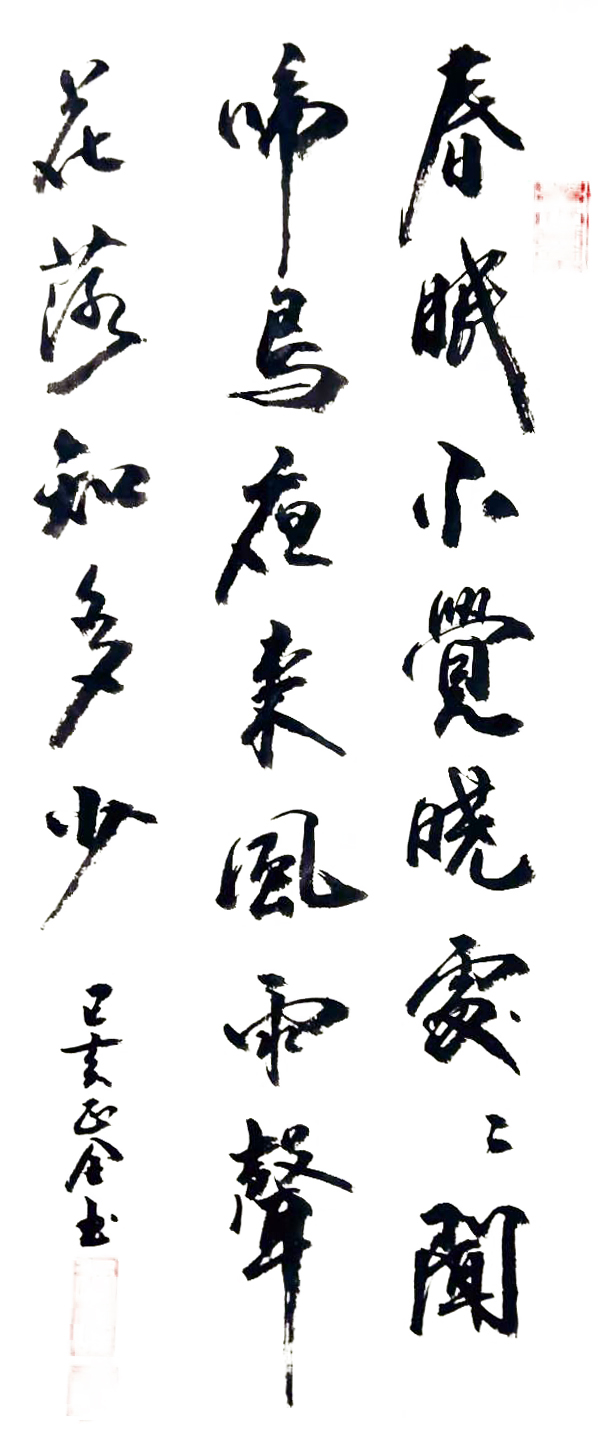 春眠不覺曉處〻聞
啼鳥夜来風雨聲
花落知多少
己亥正全书